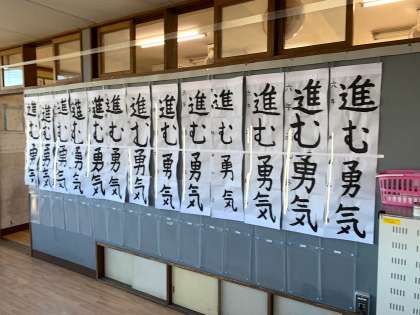 進む勇気
進む勇気
進む勇気
進む勇気
進む勇気
進む勇気
進む勇気
進む勇気
進む勇気
進む勇気
進む勇気
進む勇気
進む勇気